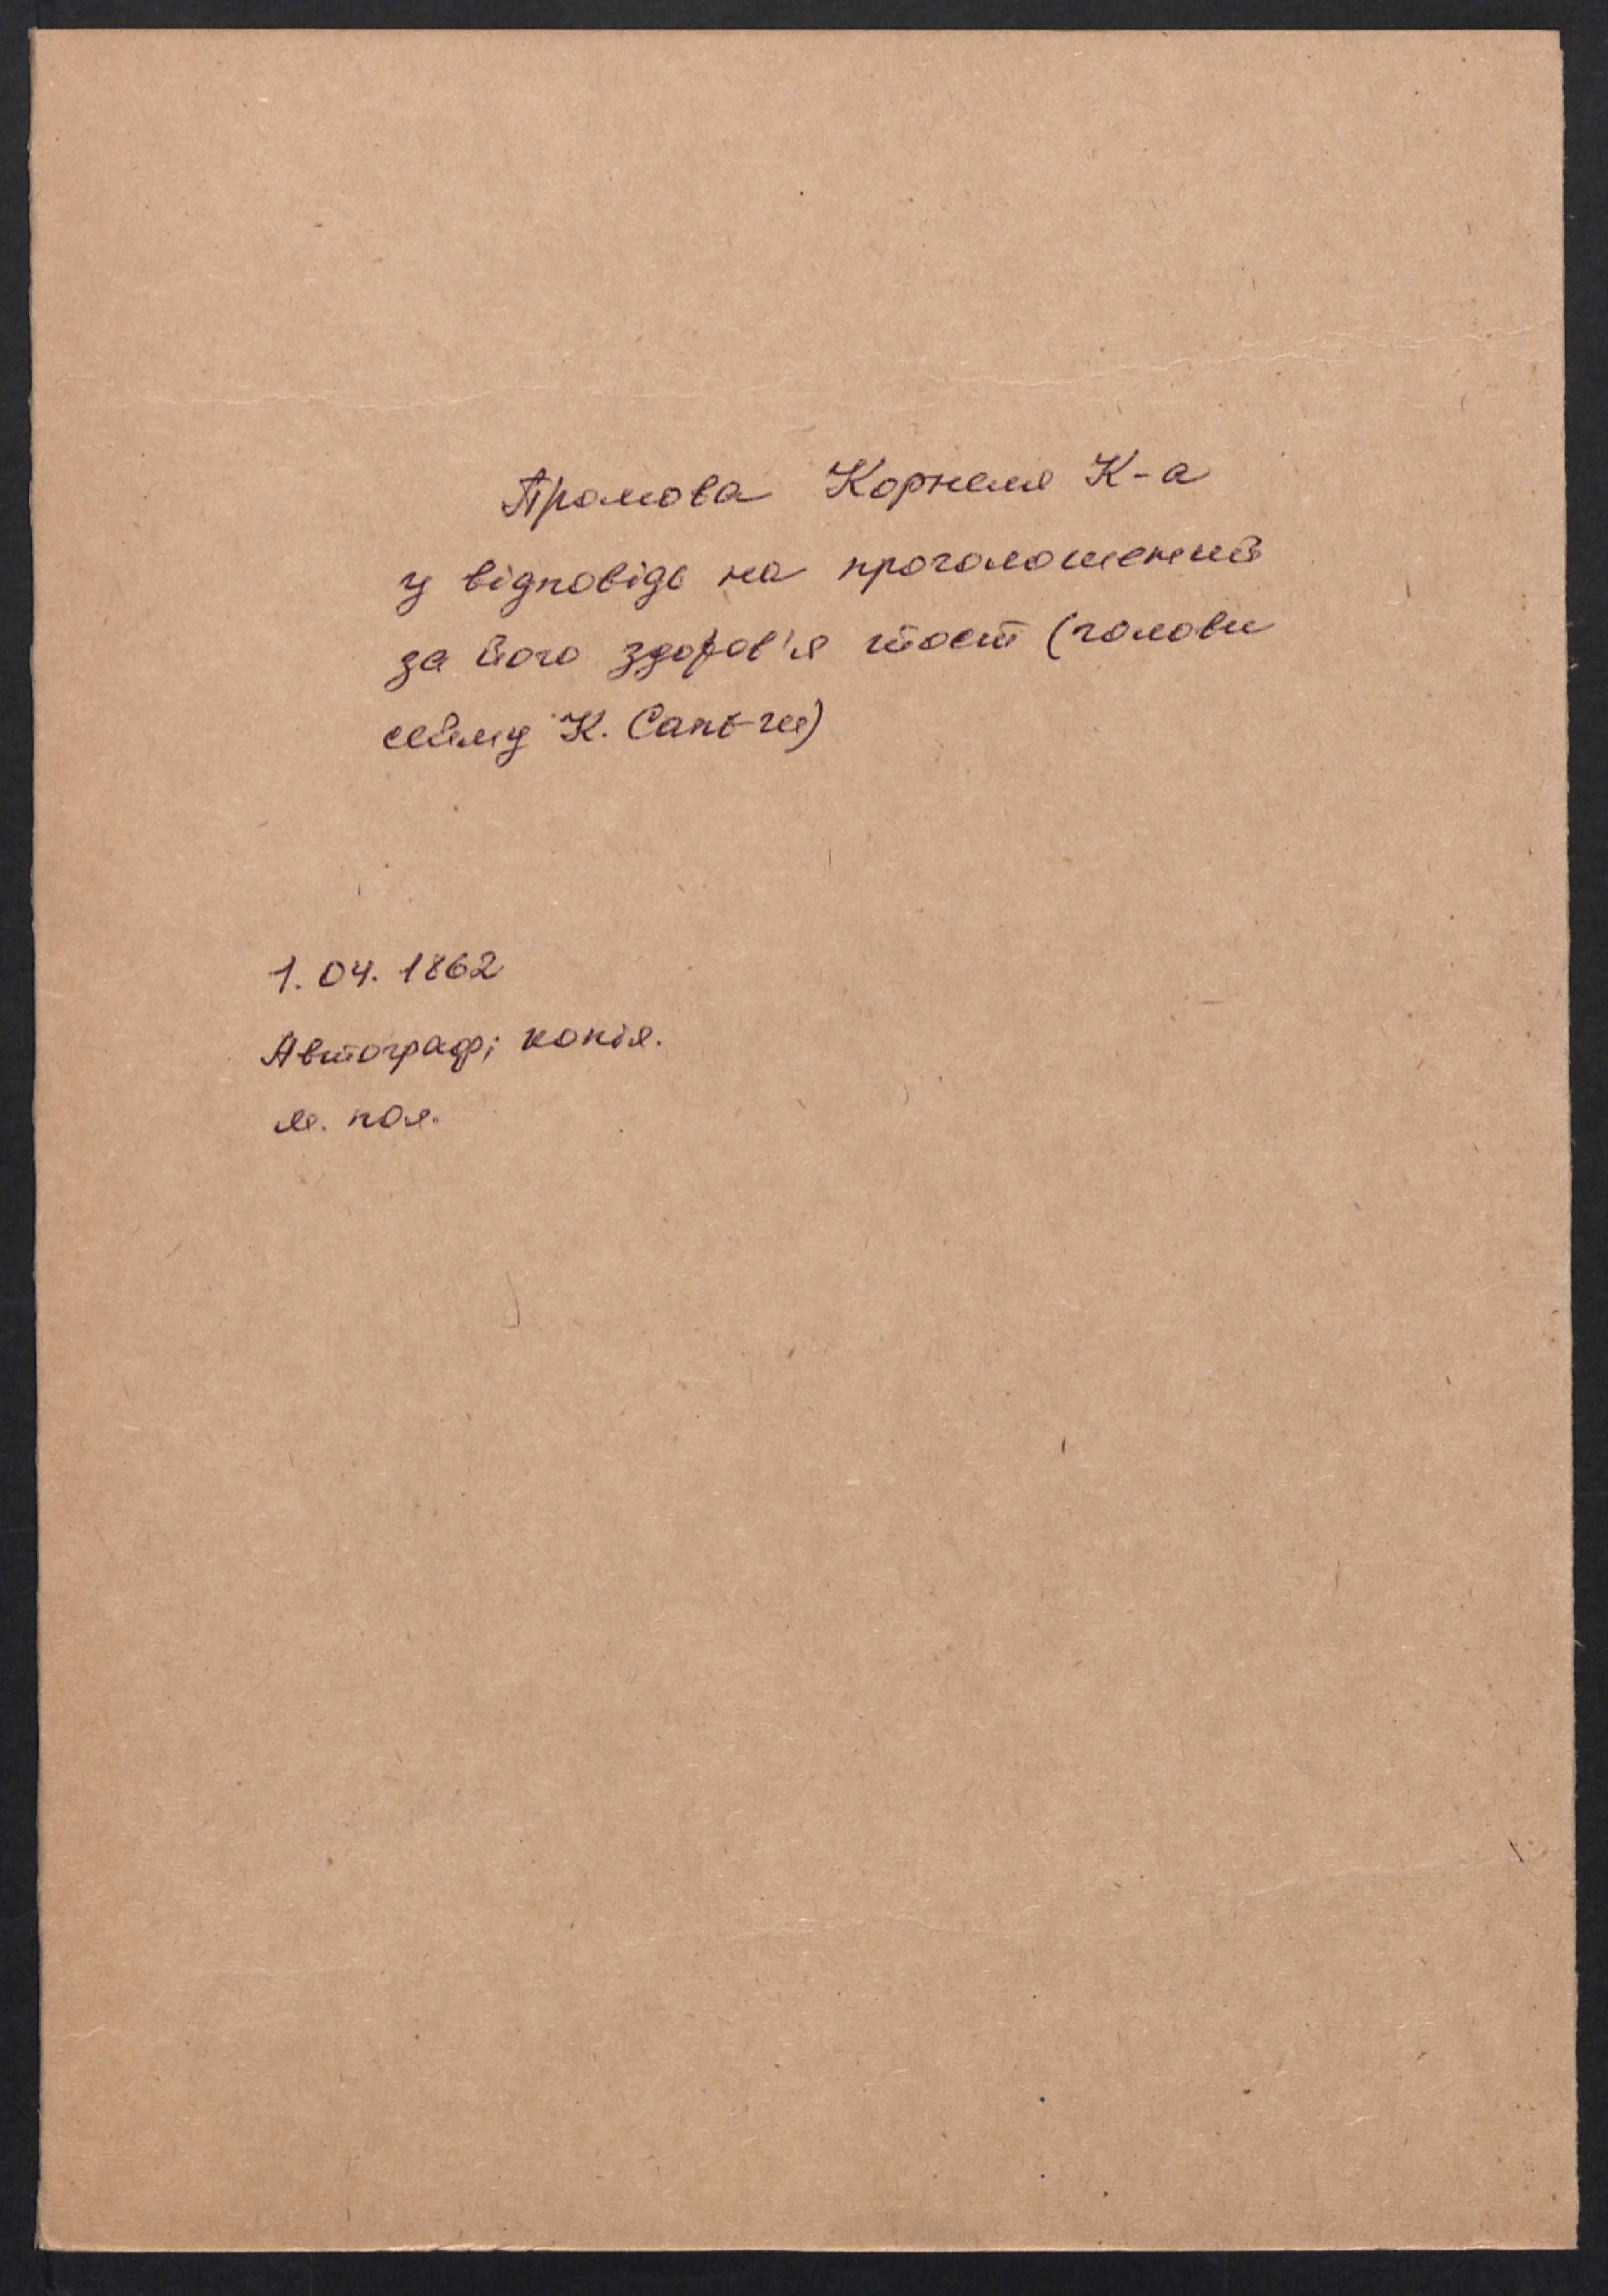 Промова Корнеля К-а
у відповідь на проголошений
за його здоров'я тост (голови
сейму К. Сапє-ги)
1. 04. 1862
Автограф; копія.
м. пол.